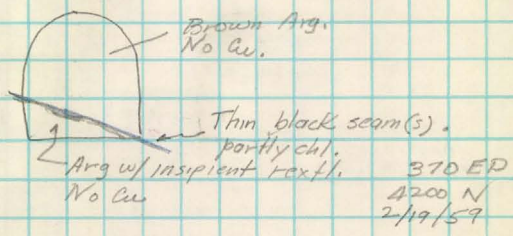 Brown Arg.
No Cu.
Thin black seam(s).
partly chl.
Arg w/ insipient rextl.
No Cu
370 ED
4200 N
2/19/59